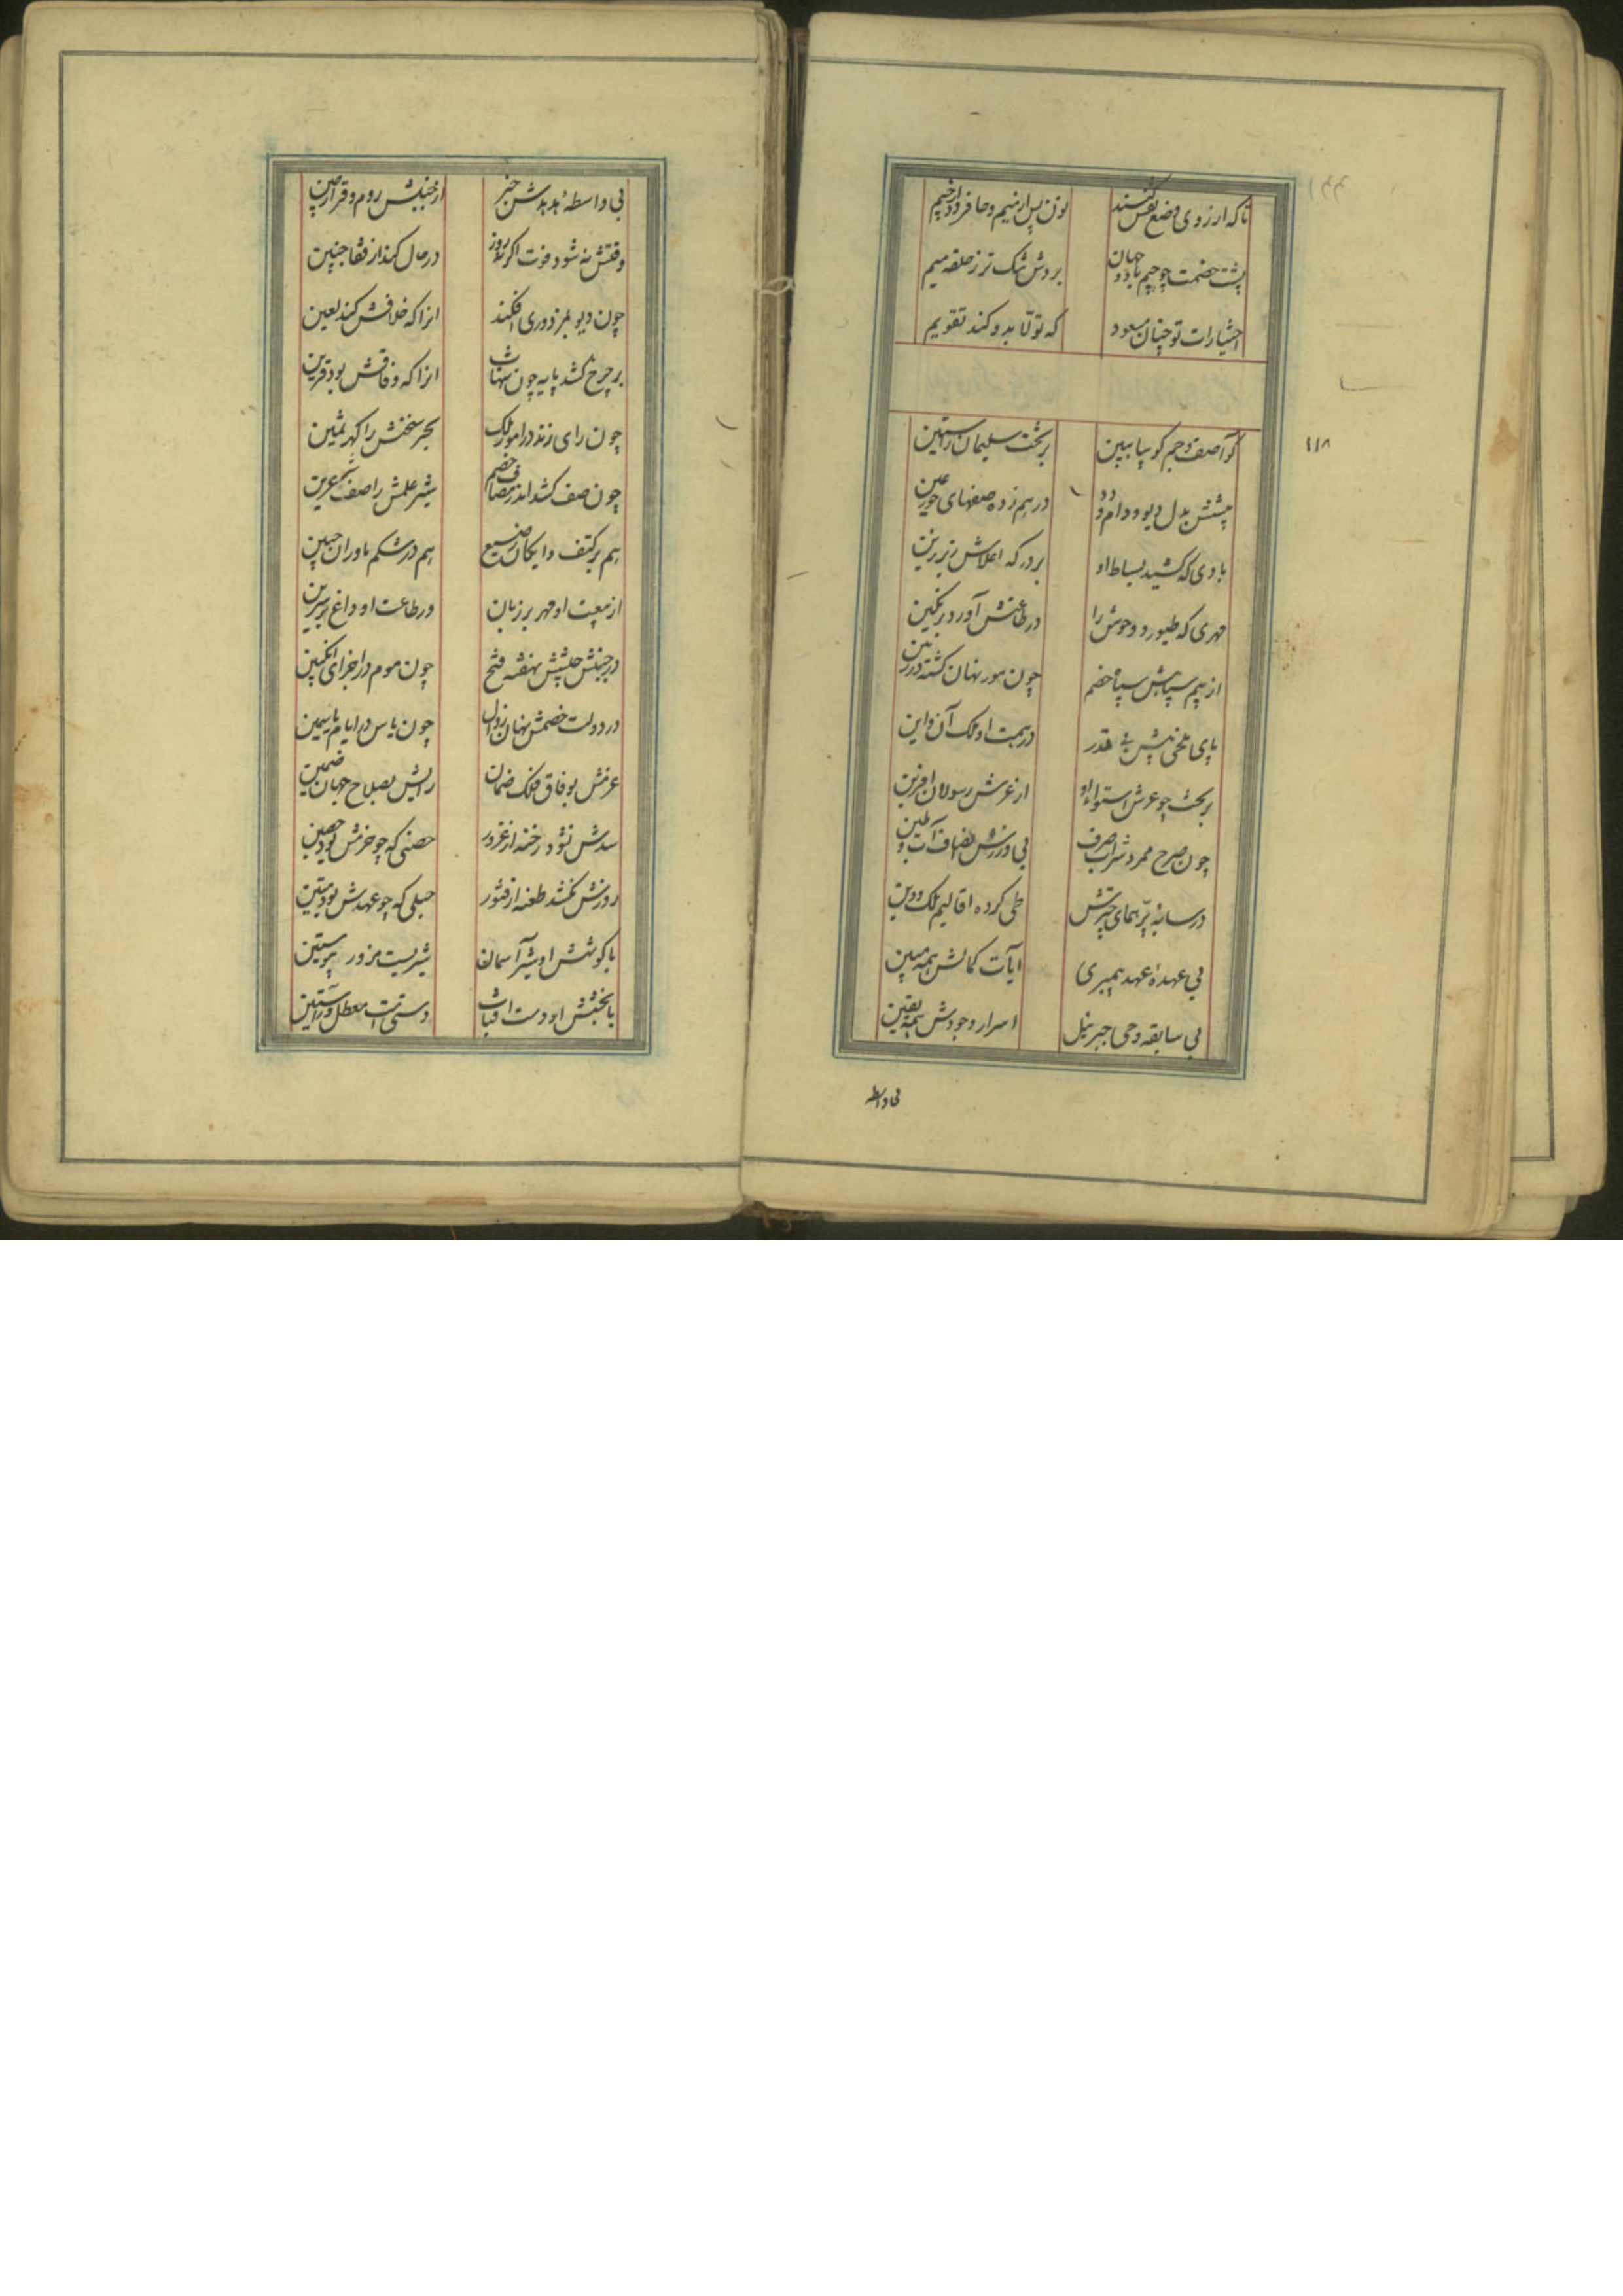 تا که از روی وضع نقش کنند نون پس از میم و حا فرود از جیم
پشت خصمت چو جیم باد و جهان بر دلش تنگ تر ز حلقه میم
اختیارات تو چنان مسعود که تولا بدو کند تقویم
کو آصف جم کو بیا ببین بر تخت سلیمان راستین
پیشش بدل دیو و دام و دد درهم زده صفهای حور عین
بادی که کشید بساط او بر درگه اعلاش زیر زین
مهری که طیور و وحوش را در طاعتش آورد بر نگین
از بیم سپاهش سپاه خصم چون مور نهان گشته در زمین
پای ملخی پیش بی قدر در همت او ملک آن و این
بر تخت چو عرش استواء او از عرش رسولان آفرین
چون صرح ممرد شراب صرف بی ورزش انصاف آب و طین
در سایهٔ پر همای چترش طی کرده اقالیم ملک و دین
بی عهدهٔ عهد پیمبری آیات کمالش همه مبین
بی سابقه وحی جبرئیل اسرار وجودش همه یقین
بی واسطه
۱۱۸
بی واسطهٔ هدهدش خبر از جنبش روم و قرار چین
وقتش نه شود فوت اگر نه روز در حال کند از قفا جبین
چون دیو بمزدوری افکند انرا که خلافش کند لعین
بر چرخ کشد پایه چون نبات انرا که وفاقش بود قرین
چون رای زند در امور ملک بحر سخنش را گهر ثمین
چون صف کشد اندر مصاف خصم شیر علمش را صف عرین
هم بر کتف دایگان رضیع هم در شکم مادران جنین
از بیعت او مهر بر زبان در طاعت او داغ بر سرین
در جنبش جیشش نهفته فتح چون موم در اجزای انگبین
در دولت خصمش نهان زوال چون یاس در ایام یاسمین
عزمش بوفاق فلک ضمان رایش بصلاح جهان ضمین
سدش نشود رخنه از غرور حصنی که چو حزمش بود حصین
روزش نکشد طعنه از فتور حبلی که چو عهدش بود متین
با کوشش او شیر آسمان شیریست مزور ز پوستین
با بخشش او دست افتاب دستی است معطل در آستین